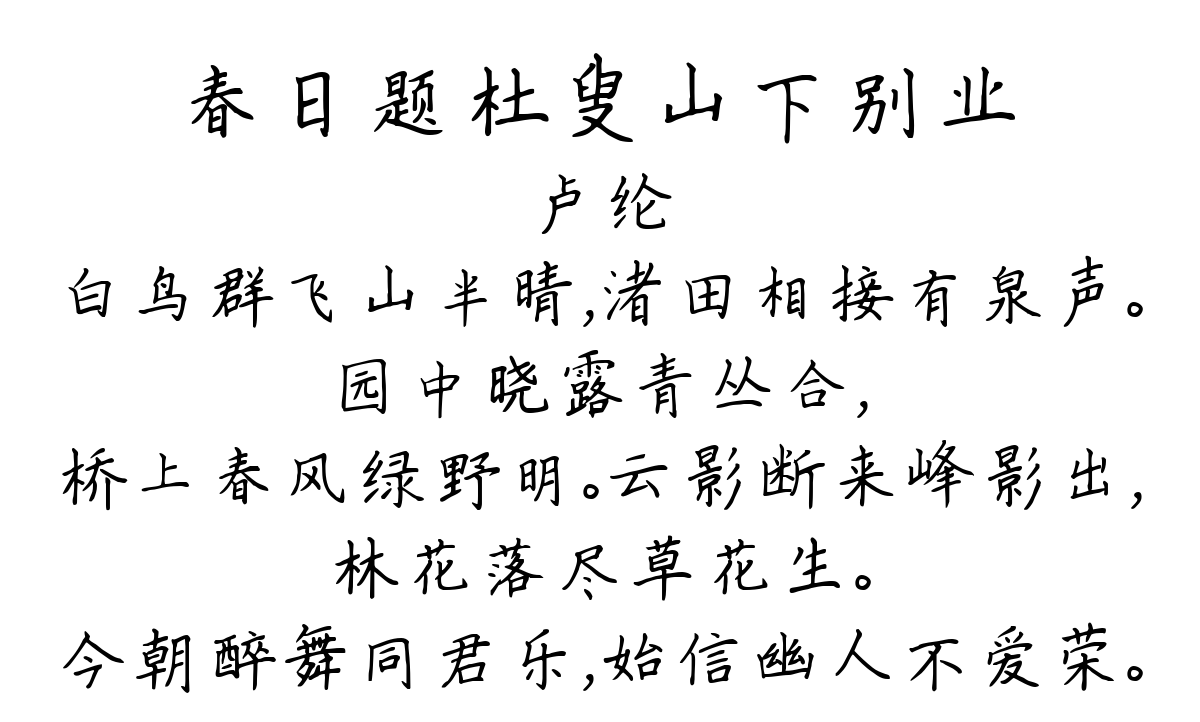 春日题杜叟山下别业
卢纶
白鸟群飞山半晴,渚田相接有泉声。
园中晓露青丛合,
桥上春风绿野明。云影断来峰影出,
林花落尽草花生。
今朝醉舞同君乐,始信幽人不爱荣。